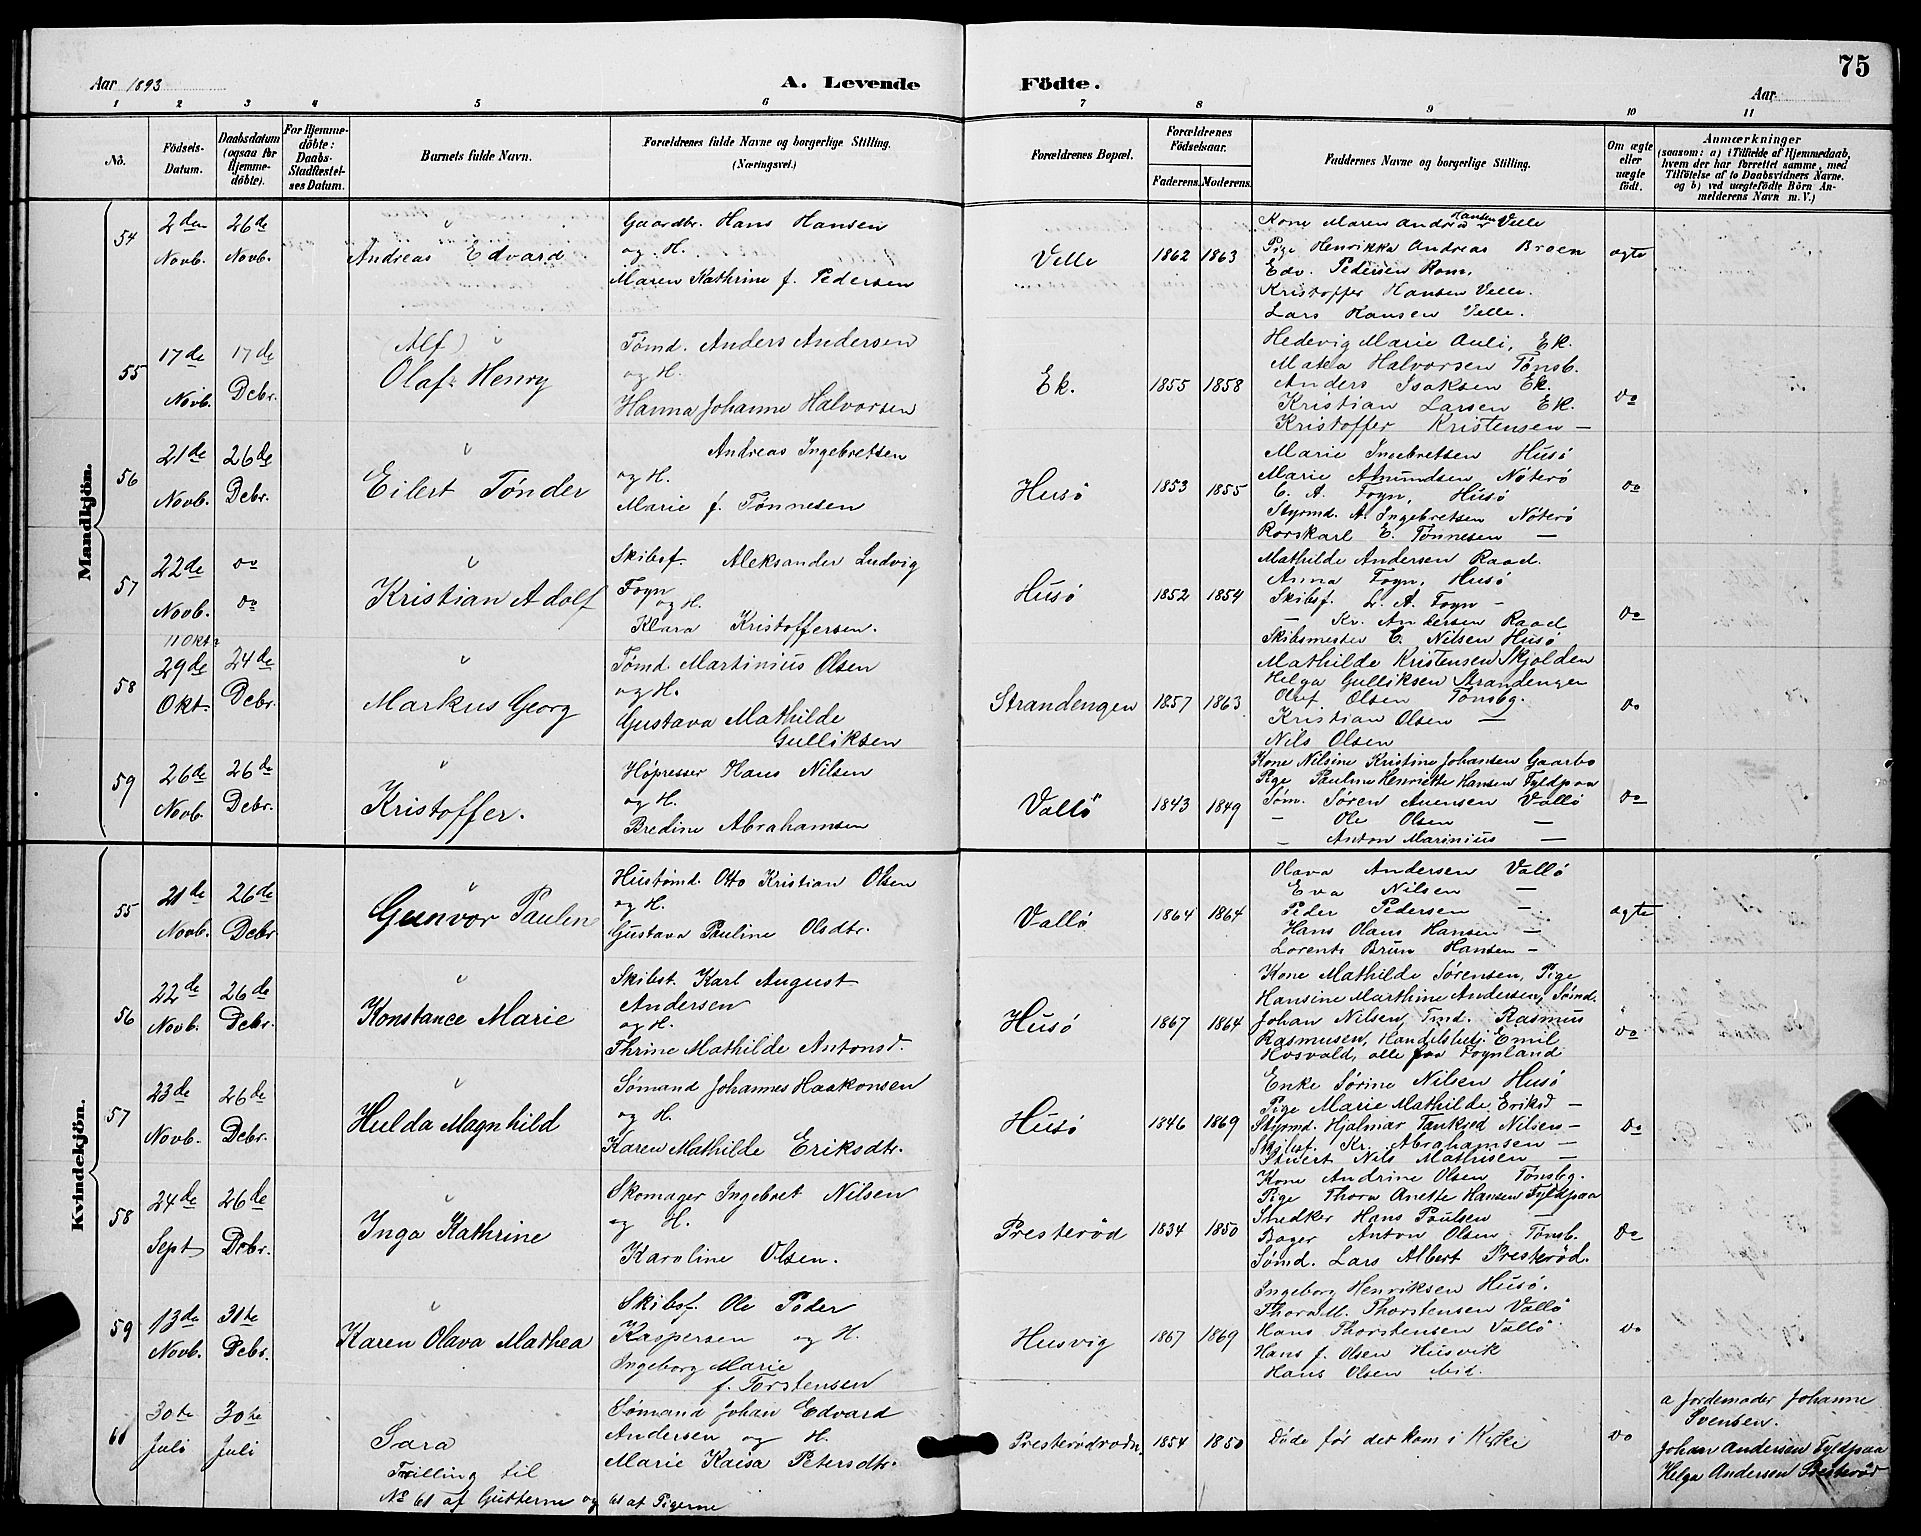 75
Aar 1893
A. Levende Födte.
Aar
1 2 3 4 5 6 7 8 9 10 11
No.
Födsels-Datum.
Daabsdatum (ogsaa for Hjemme-döbte).
For Hjemme-döbte: Daabs-Stadfæstel-ses Datum.
Barnets fulde Navn.
Forældrenes fulde Navne og borgerlige Stilling.
(Næringsvei.)
Forældrenes Bopæl.
Forældrenes Födselsaar.
Faderens. Moderens.
Faddernes Navne og borgerlige Stilling.
Om ægte eller uægte födt.
Anmærkninger
(saasom: a) i Tilfælde af Hjemmedaab,
hvem der har forrettet samme, med
Tilföielse af to Daabsvidners Navne.
og b) ved uægtefödte Börn An-
melderens Navn m. V.)
Mandkjön.
54
2den Novb.
26de Novb.
Andreas Edvard
Gaardbr. Hans Hansen
og H.
Maren Kathrine f. Pedersen
Velle
1862 1863
Kone Maren Andrea Hansen Velle
Pige Henrikka Andreas Broen
Edv. Pedersen Rom.
Kristoffer Hansen Velle.
Lars Hansen Velle.
ægte
55
17de Novb.
17de Debr.
(Alf)
Olaf Henry
Tømd. Anders Andersen
og H.
Hanna Johanne Halvorsen
Ek.
1855 1858
Hedevig Marie Auli, Ek.
Matea Halvorsen Tønsb.
Anders Isaksen Ek.
Kristian Larsen Ek.
Kristoffer Kristensen —
Do
56
21de Novb.
26de Debr.
Eilert Tønder
Andreas Ingebretsen
og H.
Marie f. Tønnesen
Husö
1853 1855
Marie Ingebretsen Husö
Marie Amundsen Nöterö
C. A. Foyn, Husö
Styrmd. A. Ingebretsen Nöterö
Rorskarl E. Tønnesen —
Do
57
22de Novb.
do do
Kristian Adolf
Skibsf. Aleksander Ludvig
Foyn
og H.
Klara Kristoffersen.
Husö
1852 1854
Mathilde Andersen Raad.
Anna Foyn, Husö
Skibsf. L. A. Foyn —
— Kr. Andersen Raad
Skibsmester C. Nilsen Husö
Do
58
11 Okt?
29de Okt.
24de Debr.
Markus Georg
Tømd. Martinius Olsen
og H.
Gustava Mathilde
Gulliksen
Strandengen
1857 1863
Mathilde Kristensen Skjolden
Helga Gulliksen Strandengen
Olaf Olsen Tønsbg.
Kristian Olsen —
Nils Olsen
Do
59
26de Novb.
26de Debr.
Kristoffer.
Høpresser Hans Nilsen
og H.
Bredine Abrahamsen
Vallö
1843 1849
Kone Nilsine Kristine Johansen Gaarbo
Pige Pauline Henriette Hansen Fyldpaa
Sóm. Sören Auensen Vallö
— Ole Olsen —
— Anton Marinius —
Do
Kvindekjön.
55
21de Novb.
26de Debr.
Gunvor Paulin
Hustømd. Otto Kristian Olsen
og H.
Gustava Pauline Olsdtr.
Vallö
1864 1864
Olava Andersen Vallö
Eva Nilsen —
Peder Pedersen —
Hans Olaus Hansen —
Lorents Brun Hansen —
ægte
56
22de Novb.
26de Debr.
Konstance Marie
Skibst. Karl August
Andersen
og H.
Thrine Mathilde Antonsd.
Husö
1867 1864
Kone Mathilde Sørensen, Pige
Hansine Marthine Andersen, Sömd.
Johan Nilsen, Tmd. Rasmus
Rasmusen, Handelsbetj. Emil
Hosvald, alle fra Foynland
Do
57
23de Novb.
26de Debr.
Hulda Magnhild
Sømand Johannes Haakonsen
og H.
Karen Mathilde Eriksdtr.
Husö
1846 1869
Enke Sörine Nilsen Husö
Pige Marie Mathilde Eriksd —
Styrmd. Hjalmar Tankred Nilsen —
Skibst. Kr. Abrahamsen —
Stuert Nils Mathisen —
Do
58
24de Sept
26de Debr.
Inga Kathrine
Skomager Ingebret Nilsen
og H.
Karoline Olsen.
Presteröd
1834 1850
Kone Andrine Olsen Tønsbg.
Pige Thora Anette Hansen Fyldpaa
Snedker Hans Paulsen —
Bager Anton Olsen Tønsb.
Sømd. Lars Albert Presteröd.
Do
59
13de Novb.
31te Debr.
Karen Olava Mathea
Skibsf. Ole Peder
Kaspersen og H.
Ingeborg Marie
f. Torstensen
Husvig
1867 1869
Ingeborg Henriksen Husö.
Thora M. Thorstensen Vallö
Hans Thorstensen Vallö
Hans J. Olsen Husvik
Hans Olsen ibid.
Do
60
30te Juli
30te Juli
Sara
Trilling til
No 61 af Gutterne og 61 af Pigerne
Sømand Johan Edvard
Andersen og H.
Marie Kaisa Petersdtr.
Presterödrødn.
1854 1850
Døde før det kom i Kirke
Do
a Jordemoder Johanne
Svensen.
Johan Andersen Fyldpaa
Helga Andersen Presteröd